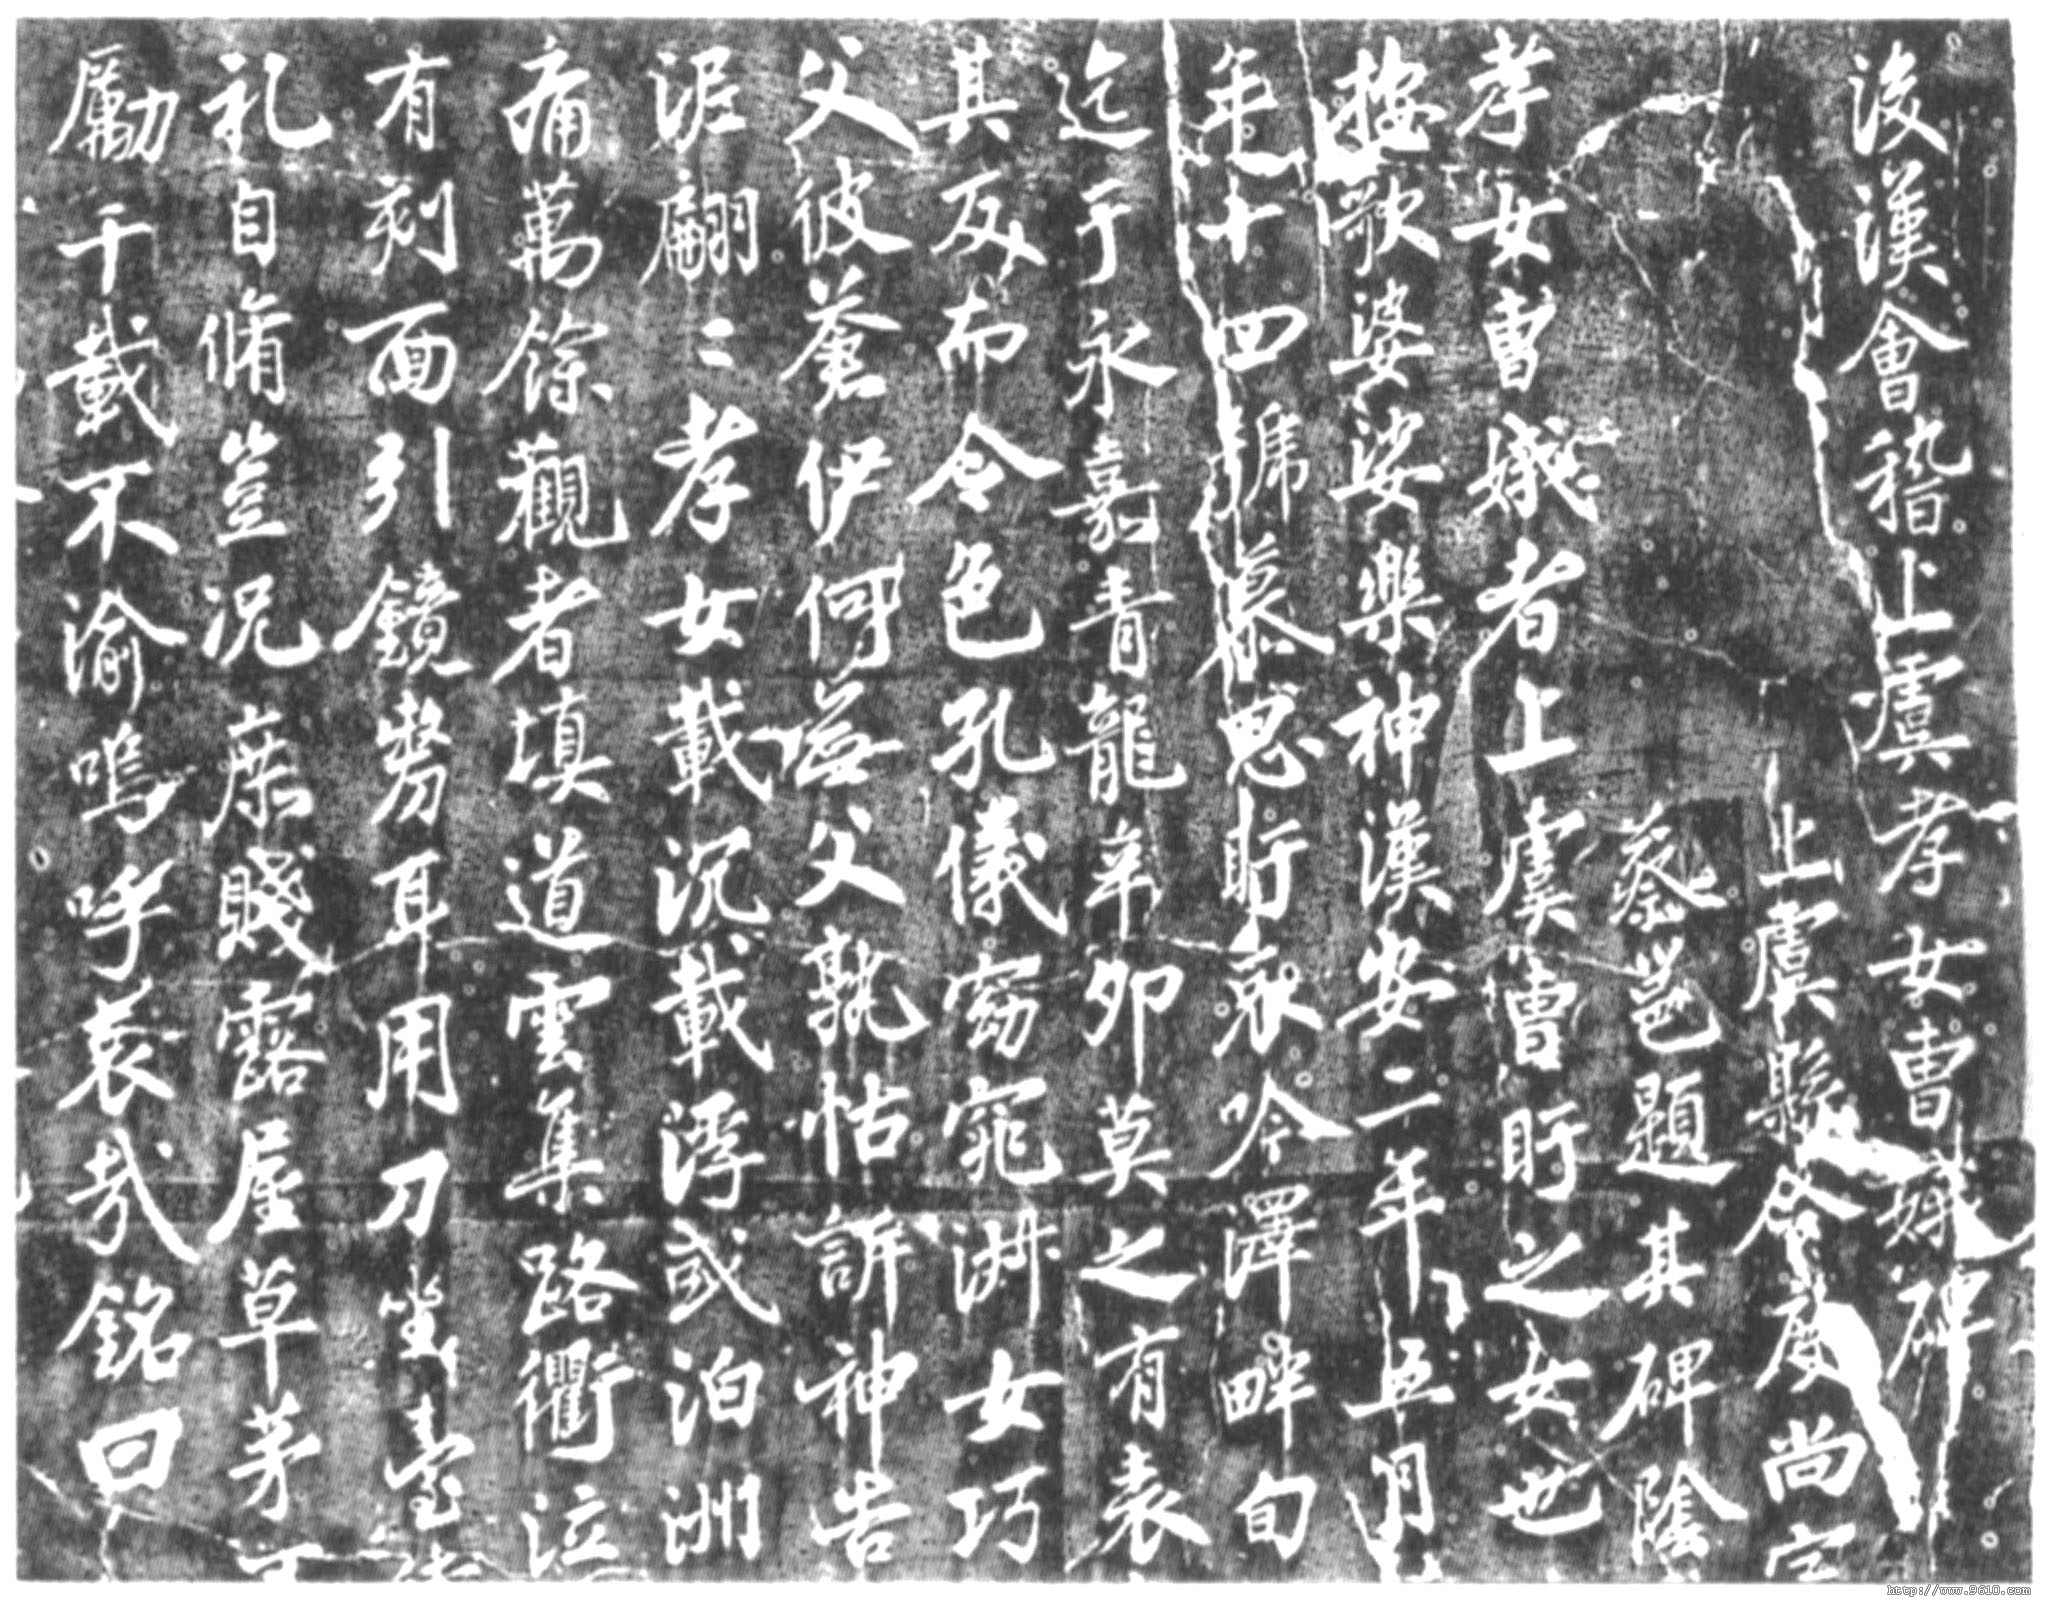 後漢會稽上虞孝女曹娥碑
上虞縣令度尚字
蔡邕題其碑陰
孝女曹娥者上虞曹盱之女也
按歌婆娑樂神漢安二年五月
年十四號慕思盱哀吟澤畔旬
迄于永嘉青龍辛卯莫之有表
其反而令色孔儀窈窕淑女巧
父彼蒼伊何無父孰怙訴神告
泥翩〻孝女載沉載浮或泊洲
痛萬餘觀者填道雲集路衢泣
有刻面引鏡剺耳用刀坐臺
礼自脩豈況庶賤露屋草茅
勵千載不渝嗚呼哀哉銘曰
http://www.9610.com